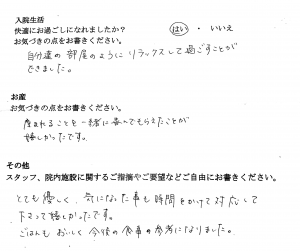 入院生活
快適にお過ごしになれましたか? はい ・ いいえ
お気づきの点をお書きください。
自分達の部屋のようにリラックスして過ごすことが
できました。
お産
お気づきの点をお書きください。
産まれることを一緒に喜んでもらえたことが
嬉しかったです。
その他
スタッフ、院内施設に関するご指摘やご要望などご自由にお書きください。
とても優しく、気になった事も時間をかけて対応して
下さって嬉しかったです。
ごはんもおいしく今後の食事の参考になりました。